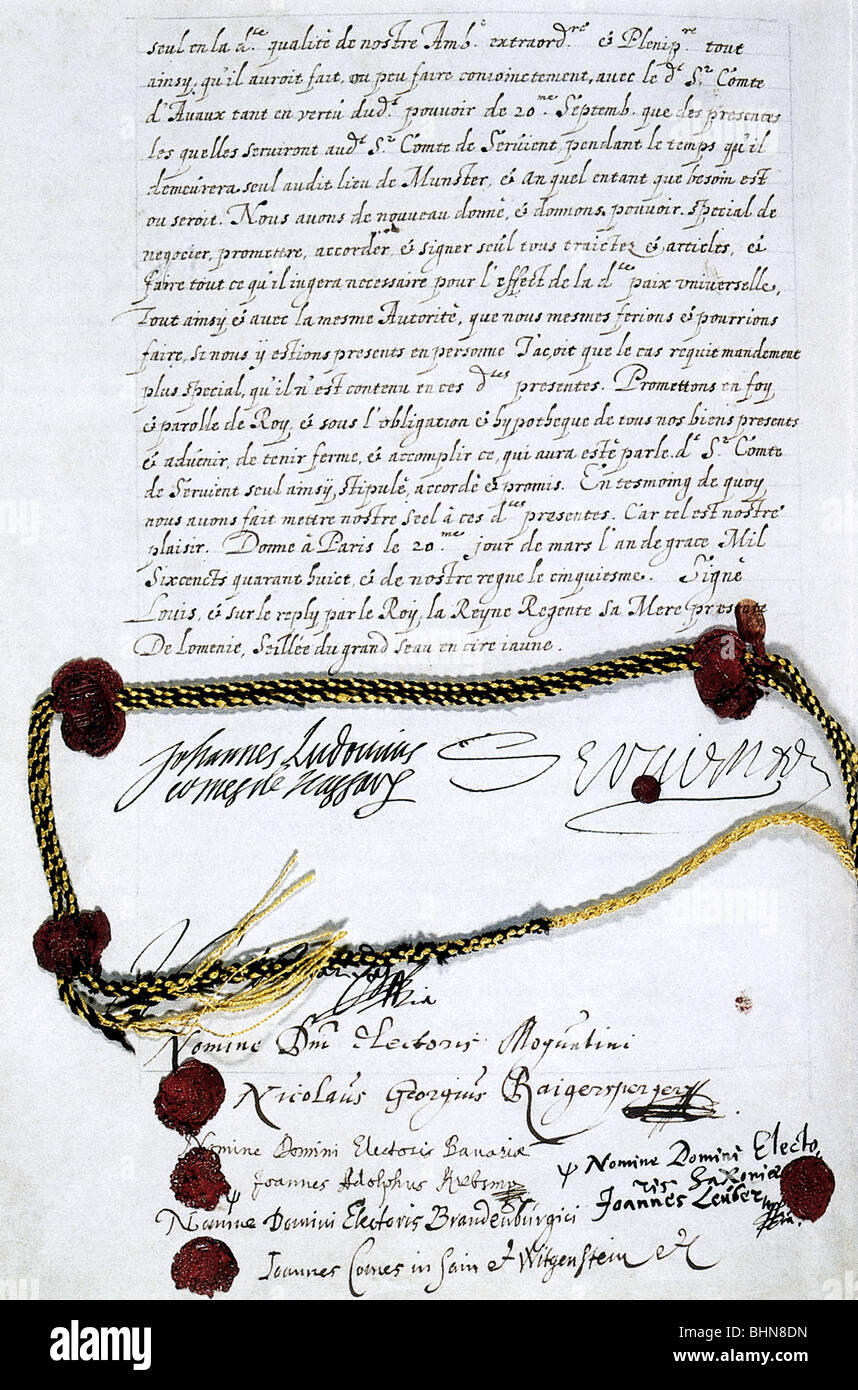 seul en la d.te qualité de nostre Amb.r extraord.re & Plenip.re tout
ainsy, qu'il auroit fait, ou peu faire conioinctement, avec le d.t S.r Comte
d'Avaux tant en vertu dud.t pouvoir de 20.me Septemb. que des presentes
les quelles serviront aud.t S.r Comte de Servient, pendant le temps qu'il
demeurera seul audit lieu de Munster, & auquel entant que besoin est
ou seroit. Nous avons de nouveau donné, & donnons, pouvoir special de
negocier, promettre, accorder, & signer seul tous traictez & articles, &
faire tout ce qu'il iugera necessaire pour l'effect de la d.te paix universelle,
Tout ainsy & avec la mesme Autorité, que nous mesmes ferions & pourrions
faire, si nous ÿ estions presents en personne Iaçoit que le cas requit mandement
plus special, qu'il n'est contenu en ces d.tes presentes. Promettons en foy
& parolle de Roy, & sous l'obligation & hypotheque de tous nos biens presents
& advenir, de tenir ferme, & accomplir ce, qui aura esté par le d.t S.r Comte
de Servient seul ainsÿ, stipulé, accordé & promis. En tesmoing de quoy
nous avons fait mettre nostre seel à ces d.tes presentes. Car tel est nostre
plaisir. Donne à Paris le 20.me jour de mars l'an de grace Mil
Sixcents quarant huict, & de nostre regne le cinquiesme. Signé
Louis, & sur le reply par le Roy, la Reyne Regente sa Mere presente
De Lomenie, Seillée du grand seau en cire iaune.
Johannes Ludovicus
comes de Nassau
Servient
Nomine Dni Electoris Moguntini
Nicolaus Georgius Raigersperger
Nomine Domini Electoris Bavariæ
Joannes Adolphus Krebs
Nomine Domini Electoris Saxoniæ
Joannes Leuber
Nomine Domini Electoris Brandenburgici
Joannes Comes in Sain et Witgenstein
alamy
Image ID: BHN8DN
www.alamy.com